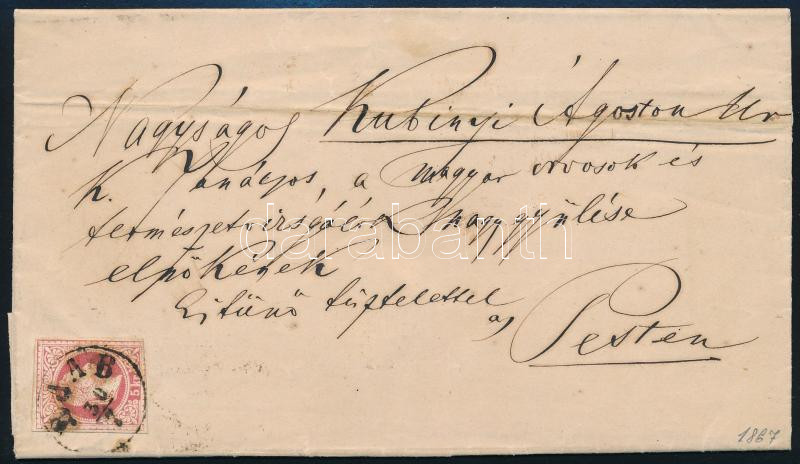 Nagyságos Kubinyi Ágoston Úr
k. Tanácsos, a magyar orvosok és
természetvizsgálók nagygyűlése
elnökének
Kitünő tisztelettel
Pesten
darabanth
RAAB
30/7
5 kr
1867